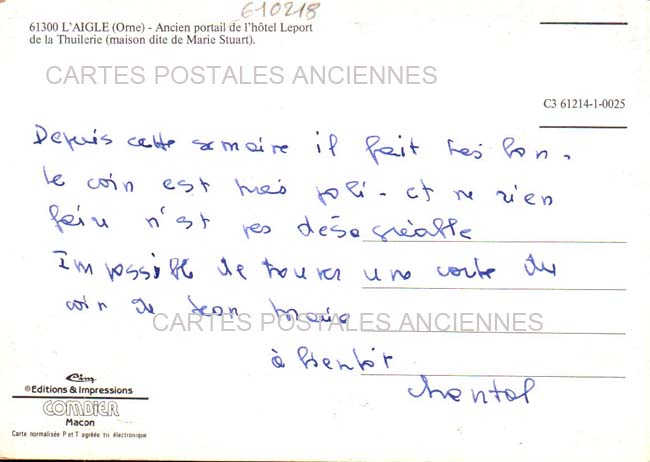 610218
61300 L'AIGLE (Orne) - Ancien portail de l'hôtel Leport
de la Thuilerie (maison dite de Marie Stuart).
CARTES POSTALES ANCIENNES
C3 61214-1-0025
Depuis cette semaine il fait très bon.
Le coin est très joli. et ne rien
faire n'est pas désagréable
Impossible de trouver une carte du
coin de Jean Marie
CARTES POSTALES ANCIENNES
à bientôt
Chantal
Cim
©Editions & Impressions
COMBIER
Macon
Carte normalisée P et T agréée tri électronique